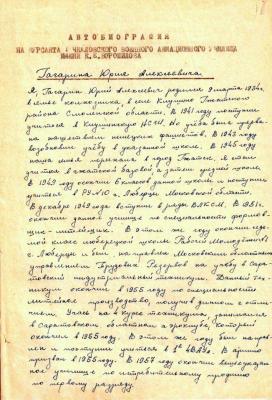 АВТОБИОГРАФИЯ
НА КУРСАНТА ЧКАЛОВСКОГО ВОЕННОГО АВИАЦИОННОГО УЧИЛИЩА
ИМЕНИ К.Е. ВОРОШИЛОВА
Гагарина Юрия Алексеевича.
Я, Гагарин Юрий Алексеевич родился 9 марта 1934г.
в семье колхозника, в селе Клушино Гжатского
района Смоленской области. В 1941 году поступил
учиться в Клушинскую НСШ. Но учёба была прерва-
на нашествием немецких фашистов. В 1943 году
возобновил учёбу в указанной школе. В 1945 году
наша семья переехала в город Гжатск. Я стал
учиться в гжатской базовой а затем средней школе.
В 1949 году окончил 6 классов данной школы и поступил
учиться в РУ №10 г. Люберцы Московской области.
В декабре 1949 года вступил в ряды ВЛКСМ. В 1951г.
окончил данное училище по специальности формов-
щик-литейщик. В этом же году окончил седь-
мой класс люберецкой школы Рабочей Молодёжи №1
г. Люберцы и был направлен Московским областным
управлением Трудовых Резервов на учёбу в Сара-
товский индустриальный техникум. Данный тех-
никум окончил в 1955 году по специальности
литейное производство, получив диплом с отли-
чием. Учась на 4 курсе техникума, занимался
в Саратовском областном аэроклубе, который
окончил в 1955 году. В этом же году был направ-
лен и поступил учиться в 1е ЧВАУЛ. В армию
призван в 1955 году. В 1957 году окончил вышеуказан-
ное училище по истребительному профилю
по первому разряду.